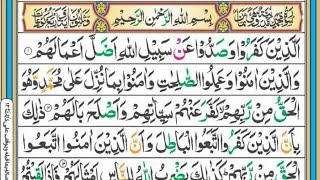 بِسْمِ اللّٰهِ الرَّحْمٰنِ الرَّحِيْمِ
اَلَّذِيْنَ كَفَرُوْا وَصَدُّوْا عَنْ سَبِيْلِ اللّٰهِ اَضَلَّ اَعْمَالَهُمْ
وَالَّذِيْنَ اٰمَنُوْا وَعَمِلُوا الصّٰلِحٰتِ وَاٰمَنُوْا بِمَا نُزِّلَ عَلٰى مُحَمَّدٍ وَّهُوَ
الْحَقُّ مِنْ رَّبِّهِمْ كَفَّرَ عَنْهُمْ سَيِّاٰتِهِمْ وَاَصْلَحَ بَالَهُمْ ذٰلِكَ
بِاَنَّ الَّذِيْنَ كَفَرُوا اتَّبَعُوا الْبَاطِلَ وَاَنَّ الَّذِيْنَ اٰمَنُوا اتَّبَعُوا
الْحَقَّ مِنْ رَّبِّهِمْ كَذٰلِكَ يَضْرِبُ اللّٰهُ لِلنَّاسِ اَمْثَالَهُمْ فَاِذَا لَقِيْتُمُ